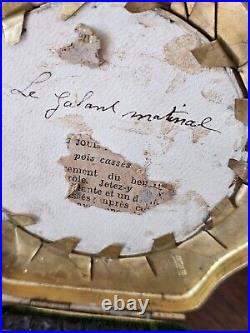 Le Galant matinal
JOUR
pois cassés
cement du be
rôle. Jetez-y
lante et un d
ssés; après ce